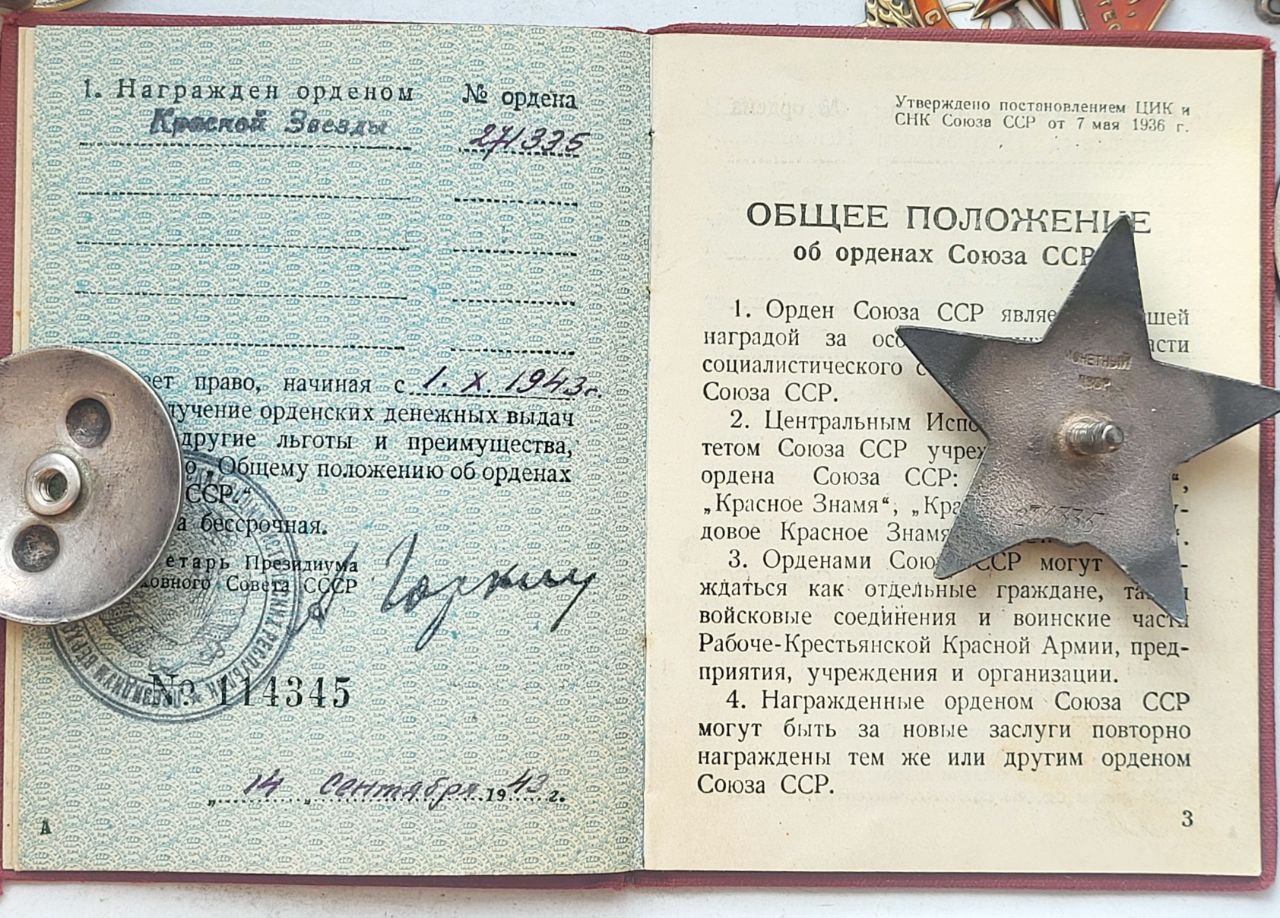 1. Награжден орденом
№ ордена
Красной Звезды
271335
ет право, начиная с 1.X.1943г.
лучение орденских денежных выдач
другие льготы и преимущества,
о „Общему положению об орденах
ССР.“
а бессрочная.
етарь Президиума
ховного Совета СССР
Горкин
№ 114345
„14„ сентября 1943 г.
А
Утверждено постановлением ЦИК и
СНК Союза ССР от 7 мая 1936 г.
ОБЩЕЕ ПОЛОЖЕНИЕ
об орденах Союза ССР
1. Орден Союза ССР являе шей
наградой за осо асти
социалистического с
Союза ССР.
2. Центральным Испо
тетом Союза ССР учреж
ордена Союза ССР:
„Красное Знамя“, „Кра у-
довое Красное Знамя
3. Орденами Союза ССР могут
ждаться как отдельные граждане, так и
войсковые соединения и воинские части
Рабоче-Крестьянской Красной Армии, пред-
приятия, учреждения и организации.
4. Награжденные орденом Союза ССР
могут быть за новые заслуги повторно
награждены тем же или другим орденом
Союза ССР.
3
МОНЕТНЫЙ
ДВОР